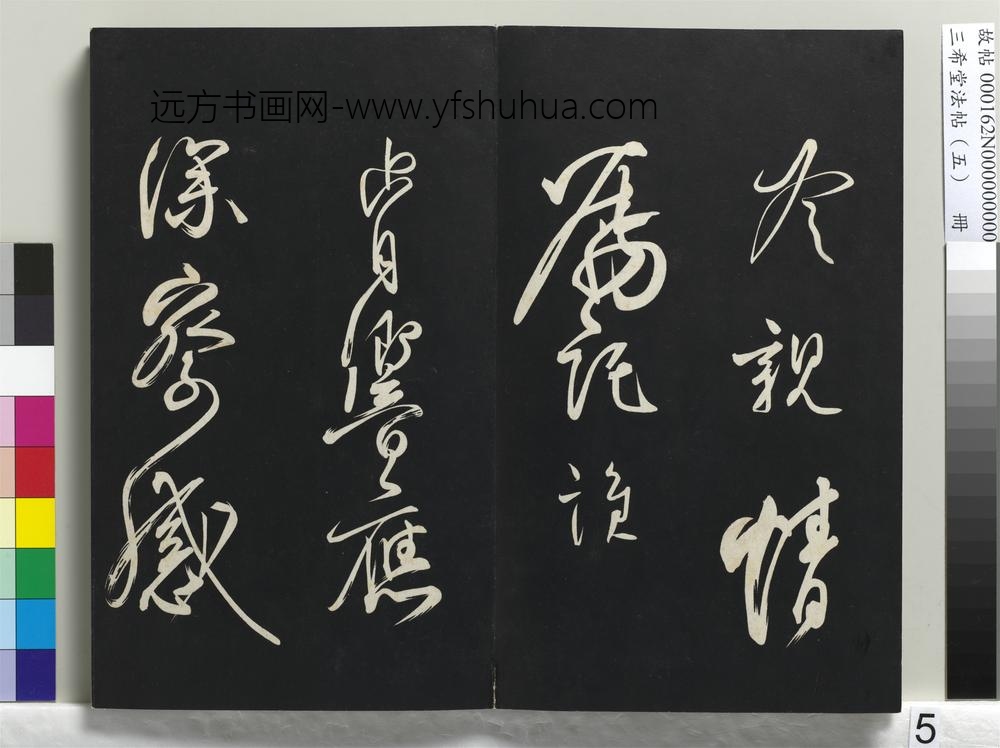 故帖 000162N000000000
三希堂法帖（五） 冊
远方书画网-www.yfshuhua.com
親情
屬託
肯響應
深察感
5